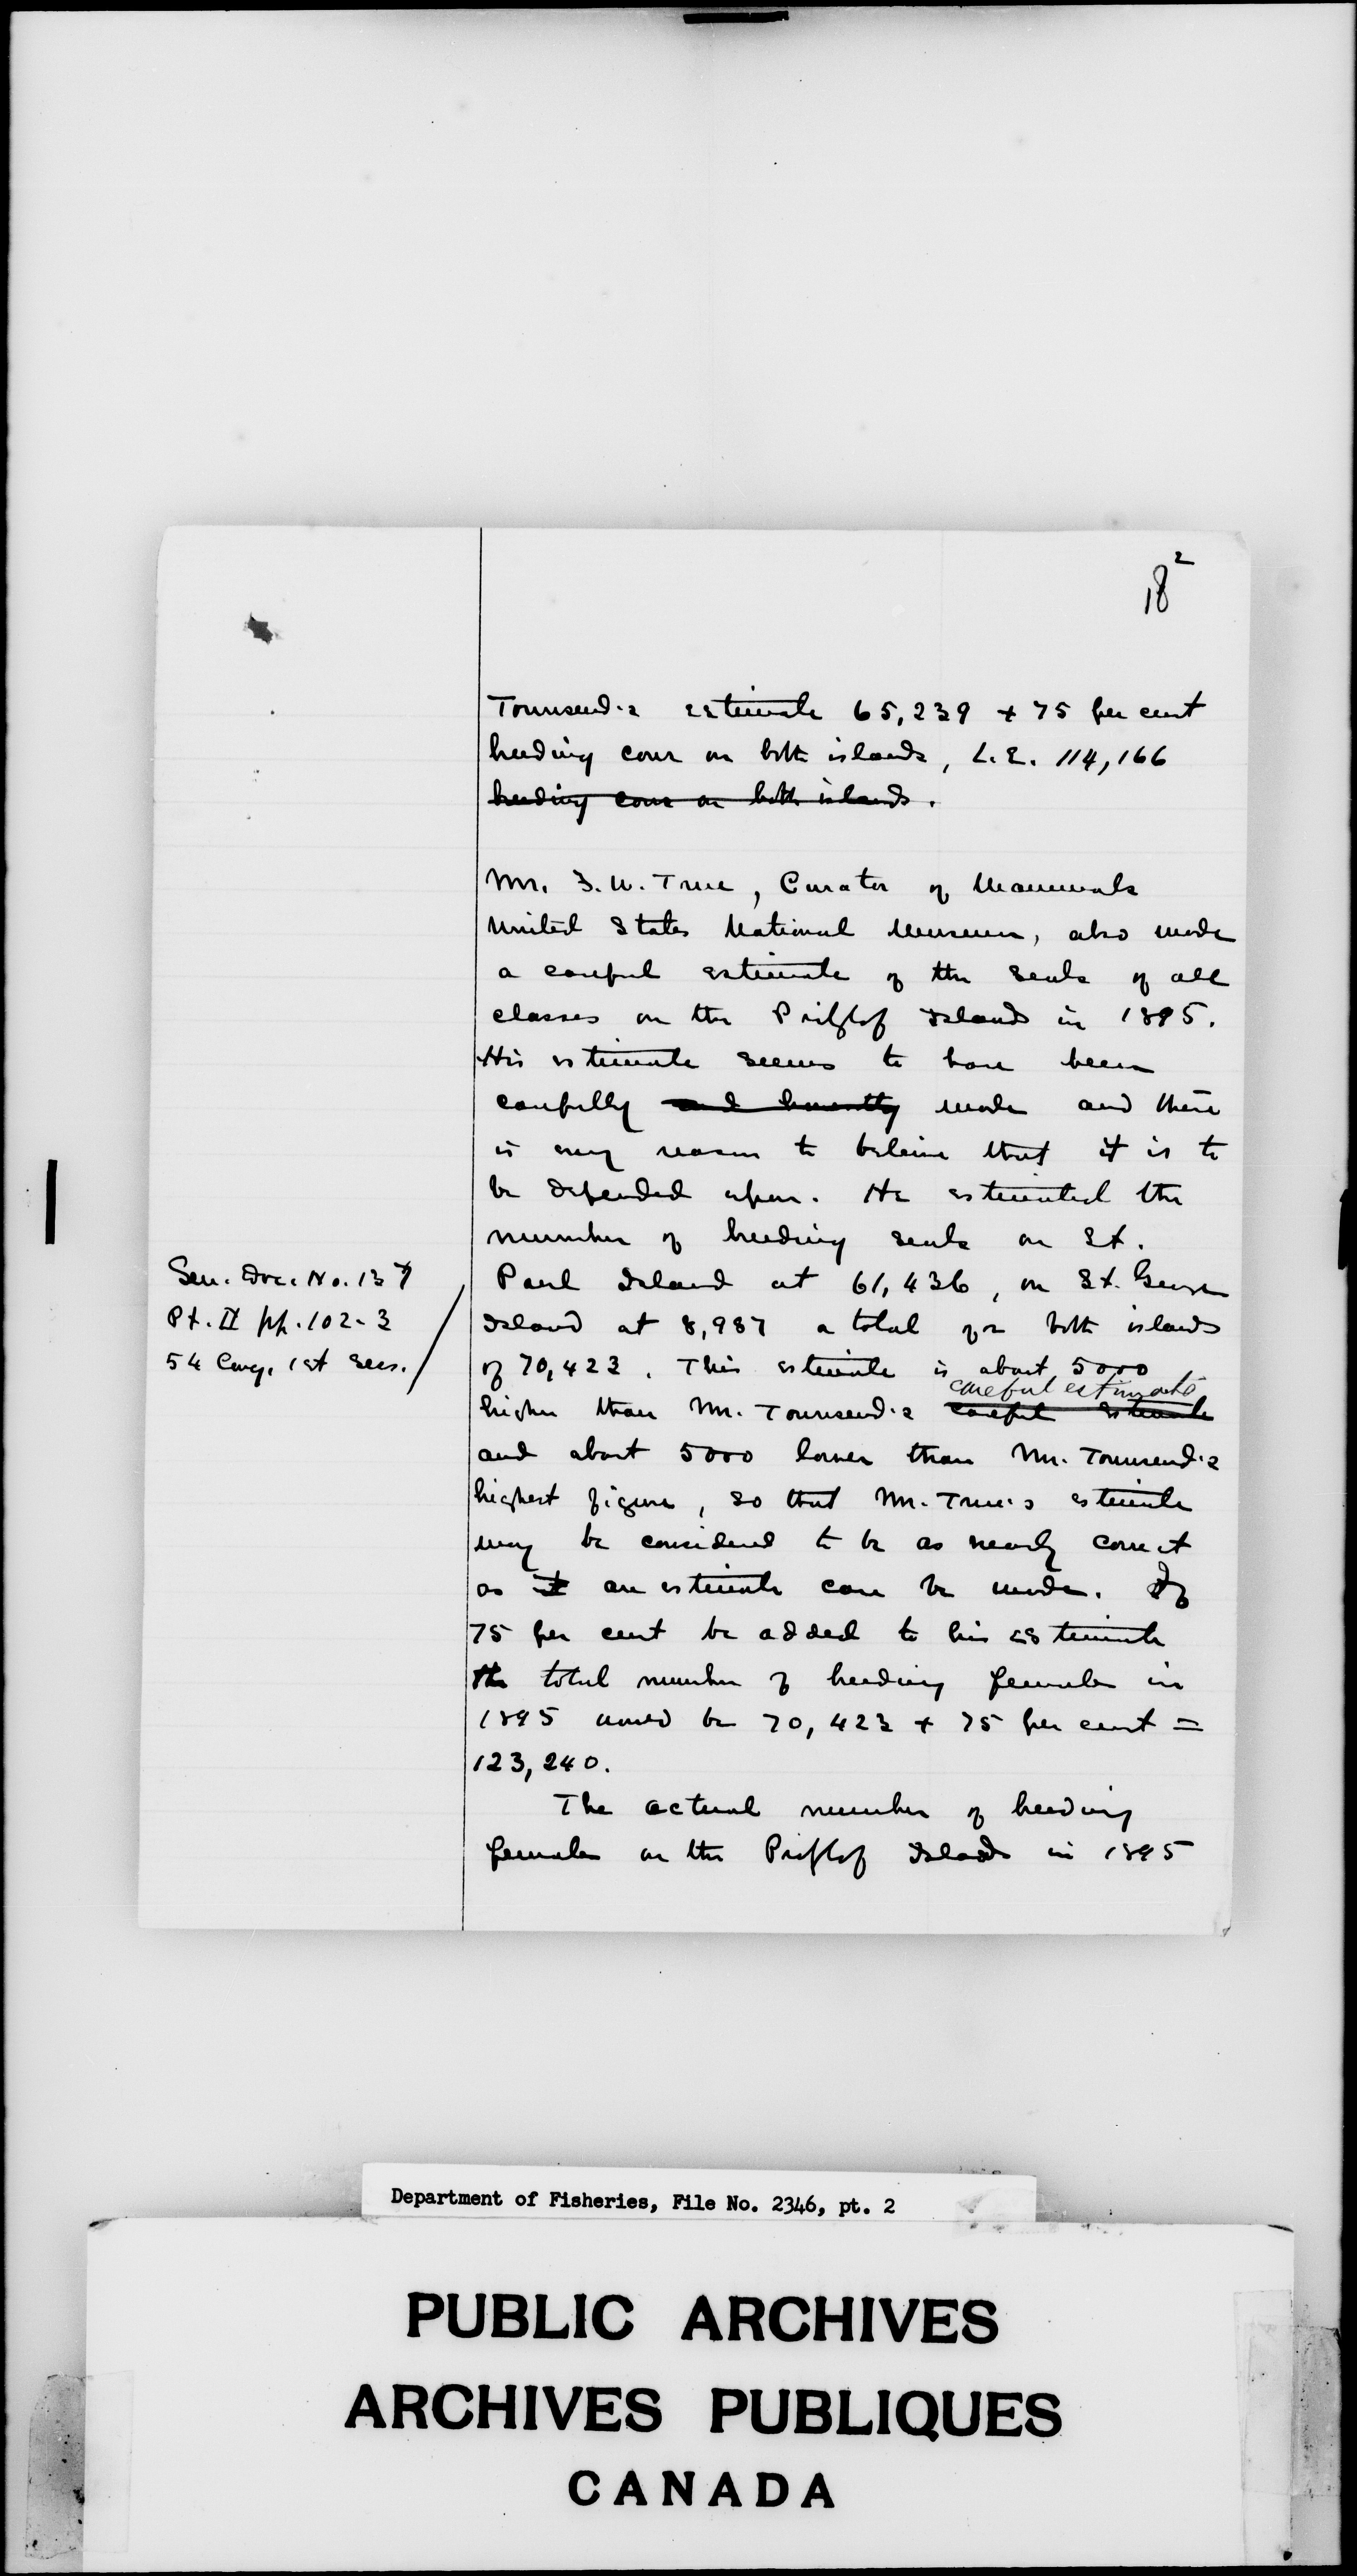 18²
Townsend's estimate 65,239 + 75 per cent
breeding cows on both islands, i.e. 114,166
breeding cows on both islands.
Mr. F. W. True, Curator of Mammals
United States National Museum, also made
a careful estimate of the seals of all
classes on the Pribylof Islands in 1895.
His estimate seems to have been
carefully and honestly made and there
is every reason to believe that it is to
be depended upon. He estimated the
number of breeding seals on St.
Paul Island at 61,436, on St. George
Island at 8,987 a total for both islands
of 70,423. This estimate is about 5000
careful estimate
higher than Mr. Townsend's careful estimate
and about 5000 lower than Mr. Townsend's
highest figure, so that Mr. True's estimate
may be considered to be as nearly correct
as it an estimate can be made. If
75 per cent be added to his estimate
the total number of breeding females in
1895 would be 70,423 + 75 per cent =
123,240.
The actual number of breeding
females on the Pribylof Islands in 1895
Sen. Doc. No. 137
Pt. II pp. 102-3
54 Cong. 1st Sess.
Department of Fisheries, File No. 2346, pt. 2
PUBLIC ARCHIVES
ARCHIVES PUBLIQUES
CANADA